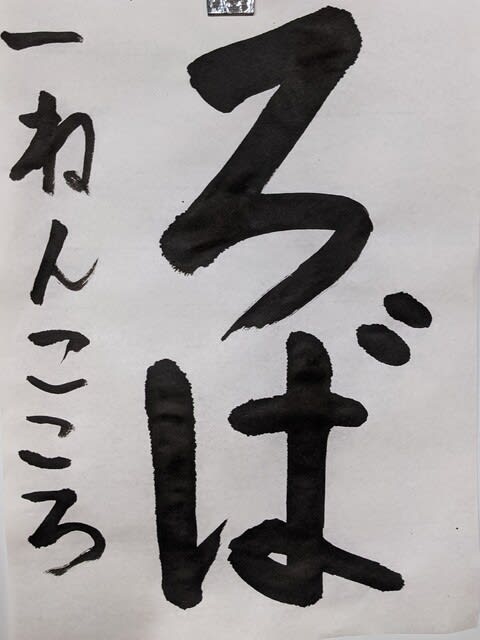 ろば
一ねんこころ